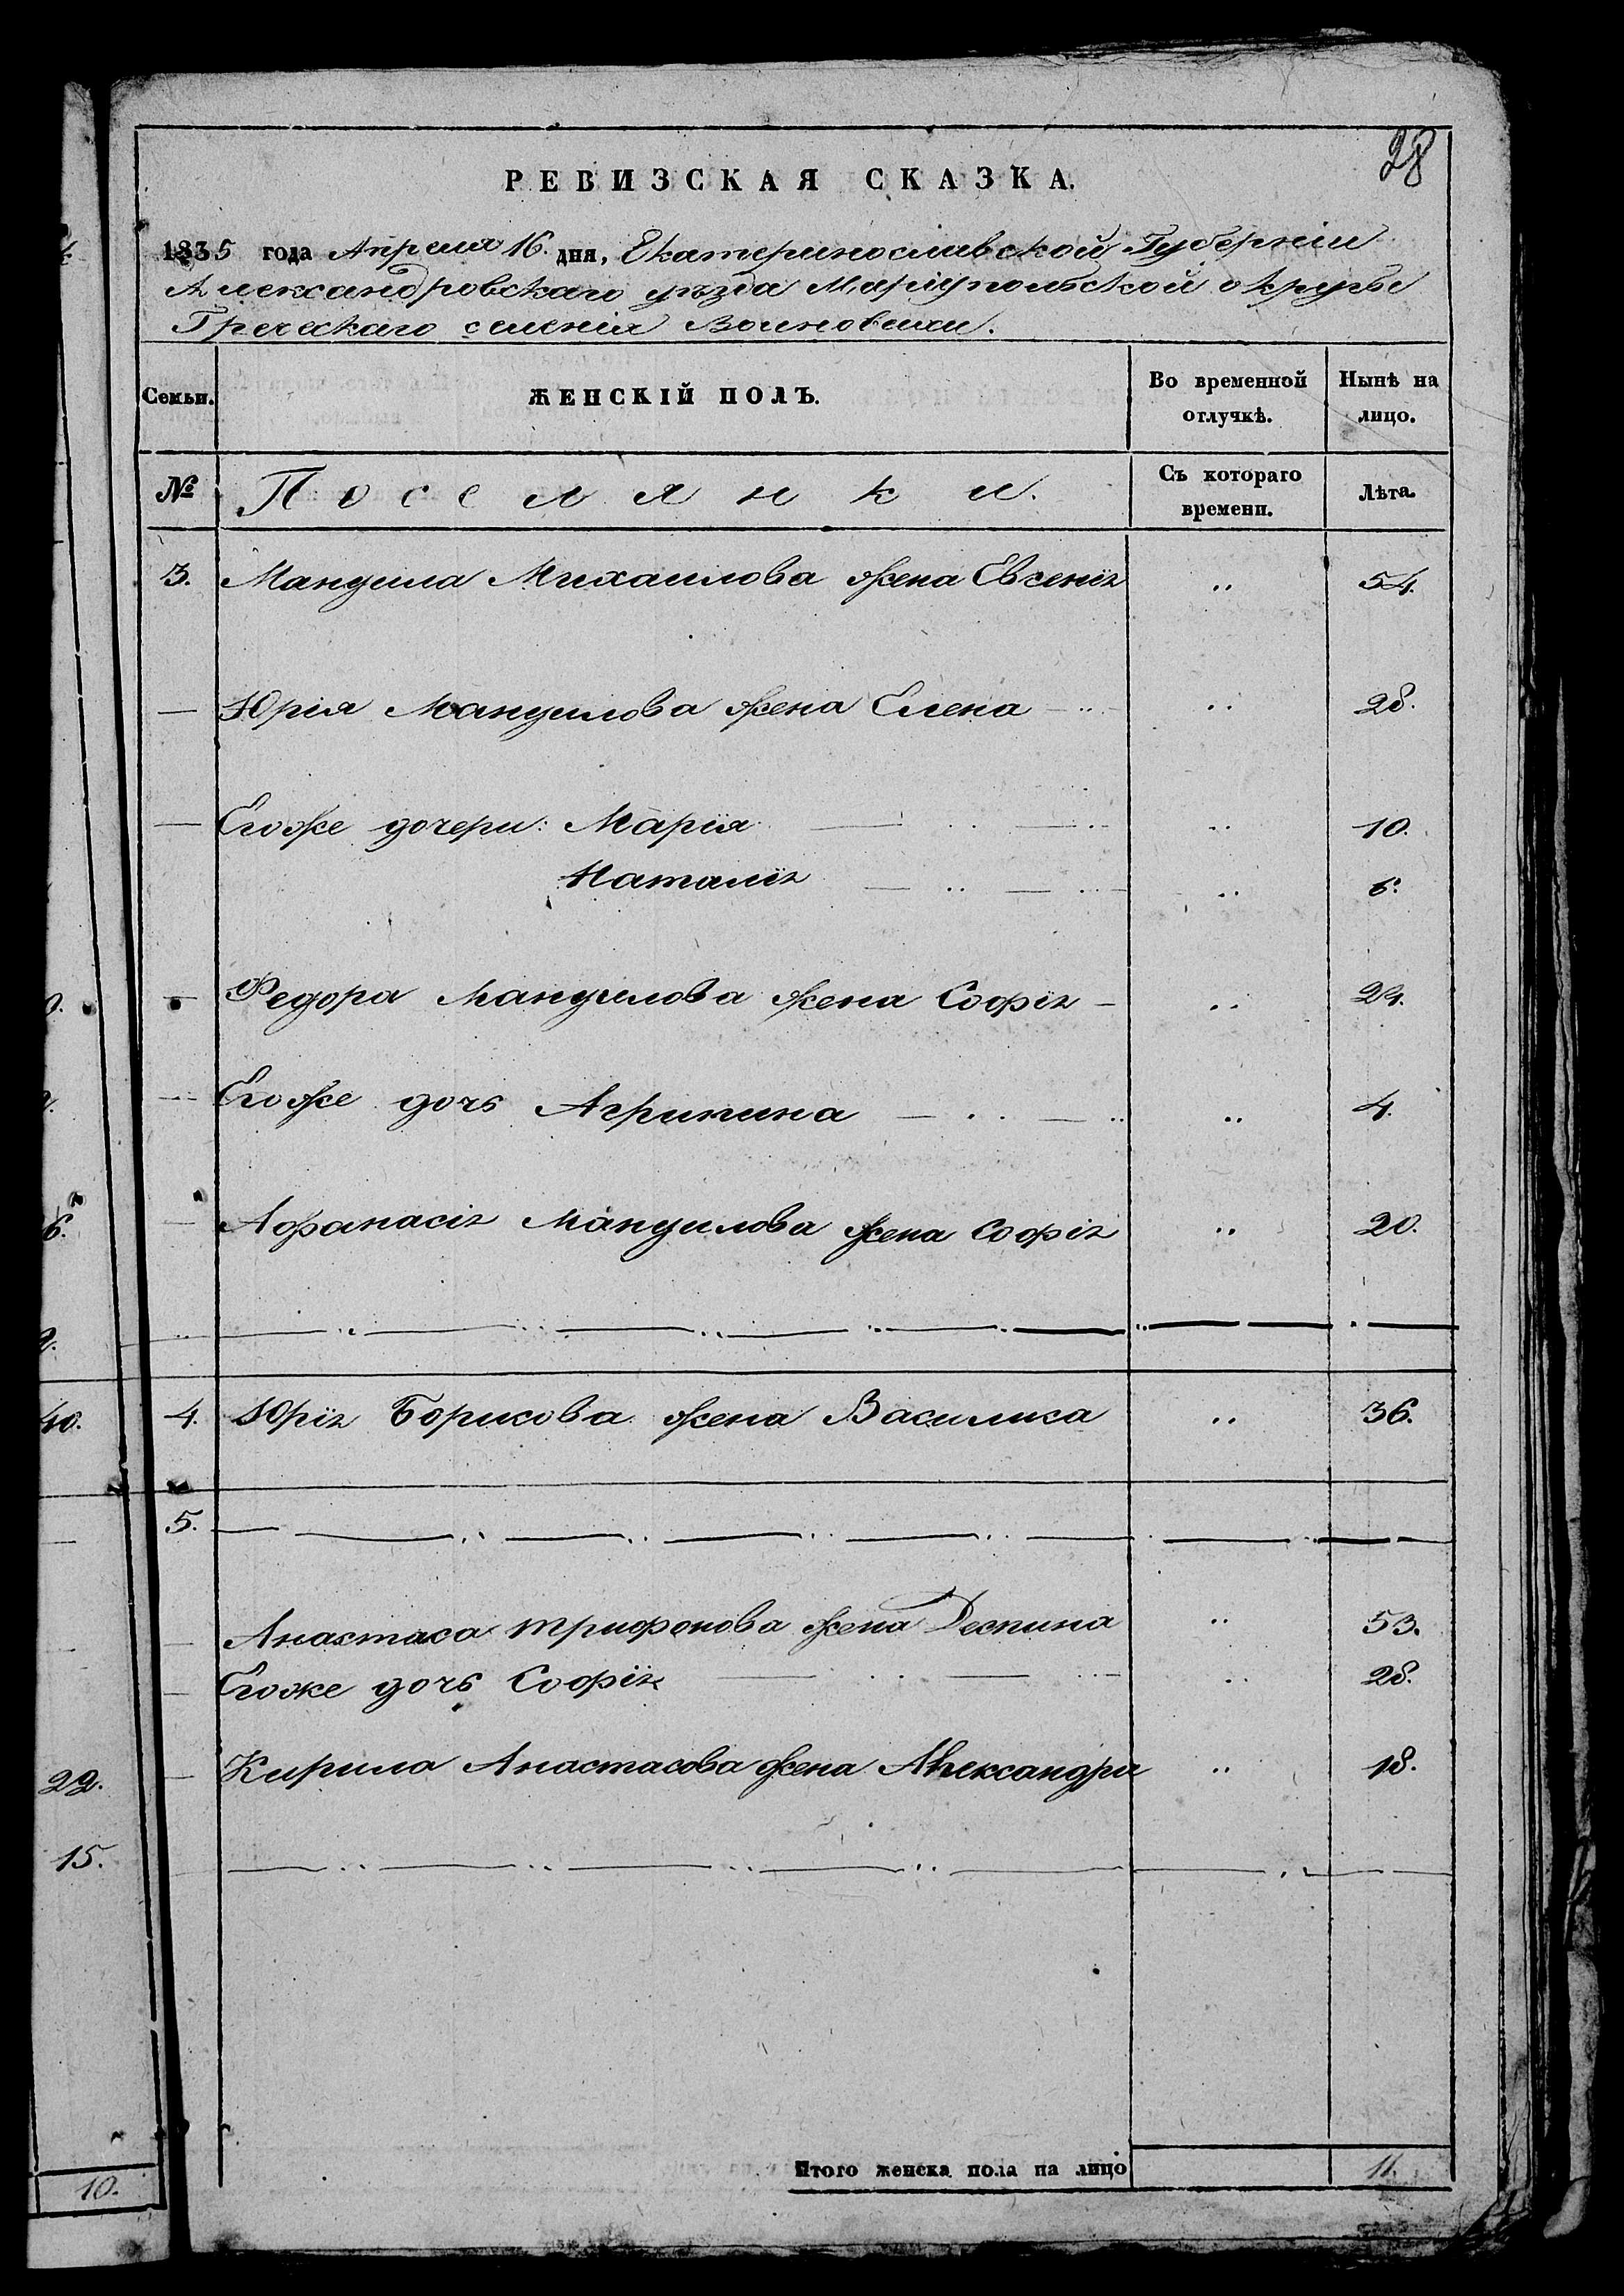 28
РЕВИЗСКАЯ СКАЗКА.
1835 года Апреля 16. дня, Екатеринославской Губерніи
Александровскаго уѣзда Маріупольской округи
Греческаго селенія
Семьи. ЖЕНСКІЙ ПОЛЪ. Во временной отлучкѣ. Нынѣ на лицо.
№ Поселянки. Съ котораго времени. Лѣта.
3. Мануила Михаилова жена Евгенія 54.
— Юрія Мануилова жена Елена 28.
— Егоже дочери: Марія 10.
Наталія 6.
— Федора Мануилова жена Софія 24.
— Егоже дочь Агрипина 4.
— Афанасія Мануилова жена Софія 20.
4. Юрія Борисова жена Василиса 36.
5.
— Анастаса Трифонова жена Деспина 53.
— Егоже дочь Софія 28.
— Кирила Анастасова жена Александра 18.
Итого женска пола на лицо 11.
40.
22.
15.
10.